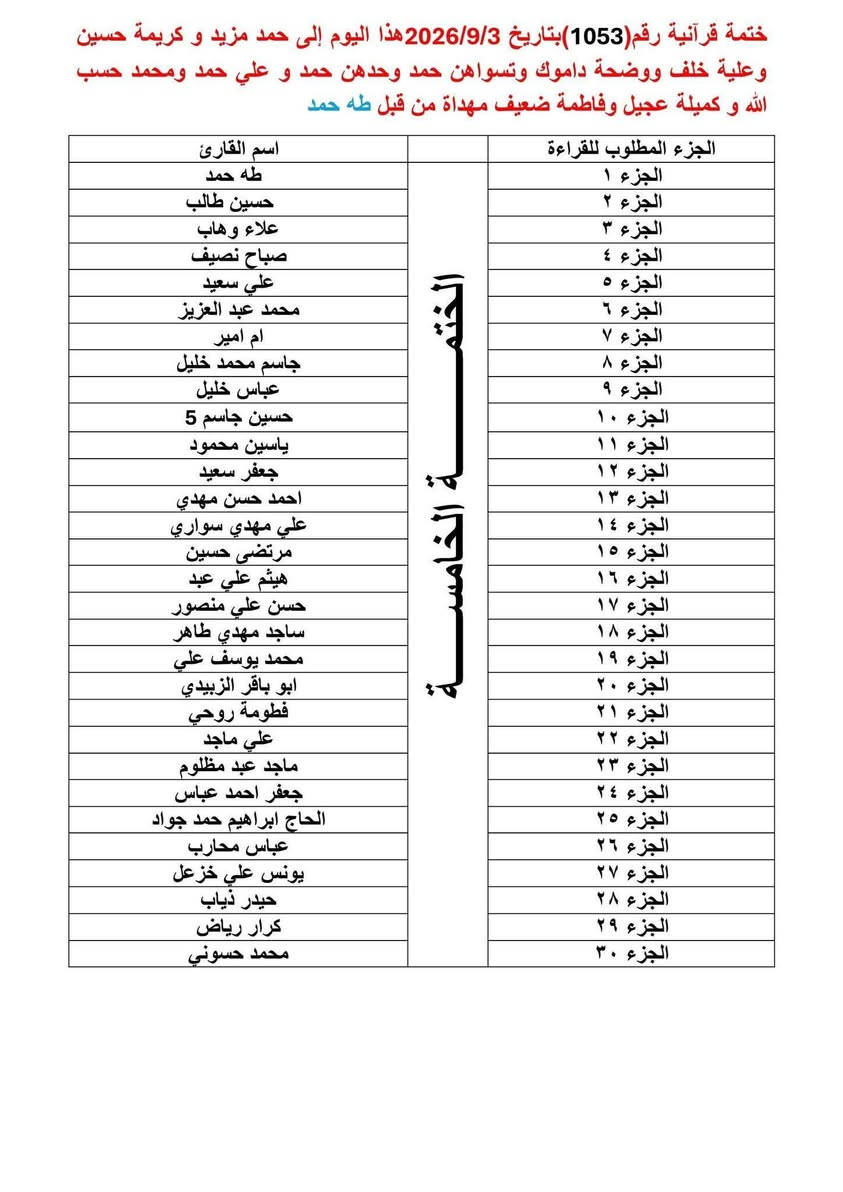 ختمة قرآنية رقم(1053)بتاريخ 2026/9/3هذا اليوم إلى حمد مزيد و كريمة حسين
وعلية خلف ووضحة داموك وتسواهن حمد وحدهن حمد و علي حمد ومحمد حسب
الله و كميلة عجيل وفاطمة ضعيف مهداة من قبل طه حمد
الجزء المطلوب للقراءة اسم القارئ
الجزء ١ طه حمد
الجزء ٢ حسين طالب
الجزء ٣ علاء وهاب
الجزء ٤ صباح نصيف
الجزء ٥ علي سعيد
الجزء ٦ محمد عبد العزيز
الجزء ٧ ام امير
الجزء ٨ جاسم محمد خليل
الجزء ٩ عباس خليل
الجزء ١٠ حسين جاسم 5
الجزء ١١ ياسين محمود
الجزء ١٢ جعفر سعيد
الجزء ١٣ احمد حسن مهدي
الجزء ١٤ علي مهدي سواري
الجزء ١٥ مرتضى حسين
الجزء ١٦ هيثم علي عبد
الجزء ١٧ حسن علي منصور
الجزء ١٨ ساجد مهدي طاهر
الجزء ١٩ محمد يوسف علي
الجزء ٢٠ ابو باقر الزبيدي
الجزء ٢١ فطومة روحي
الجزء ٢٢ علي ماجد
الجزء ٢٣ ماجد عبد مظلوم
الجزء ٢٤ جعفر احمد عباس
الجزء ٢٥ الحاج ابراهيم حمد جواد
الجزء ٢٦ عباس محارب
الجزء ٢٧ يونس علي خزعل
الجزء ٢٨ حيدر ذياب
الجزء ٢٩ كرار رياض
الجزء ٣٠ محمد حسوني
الختمـــــة الخامســـة